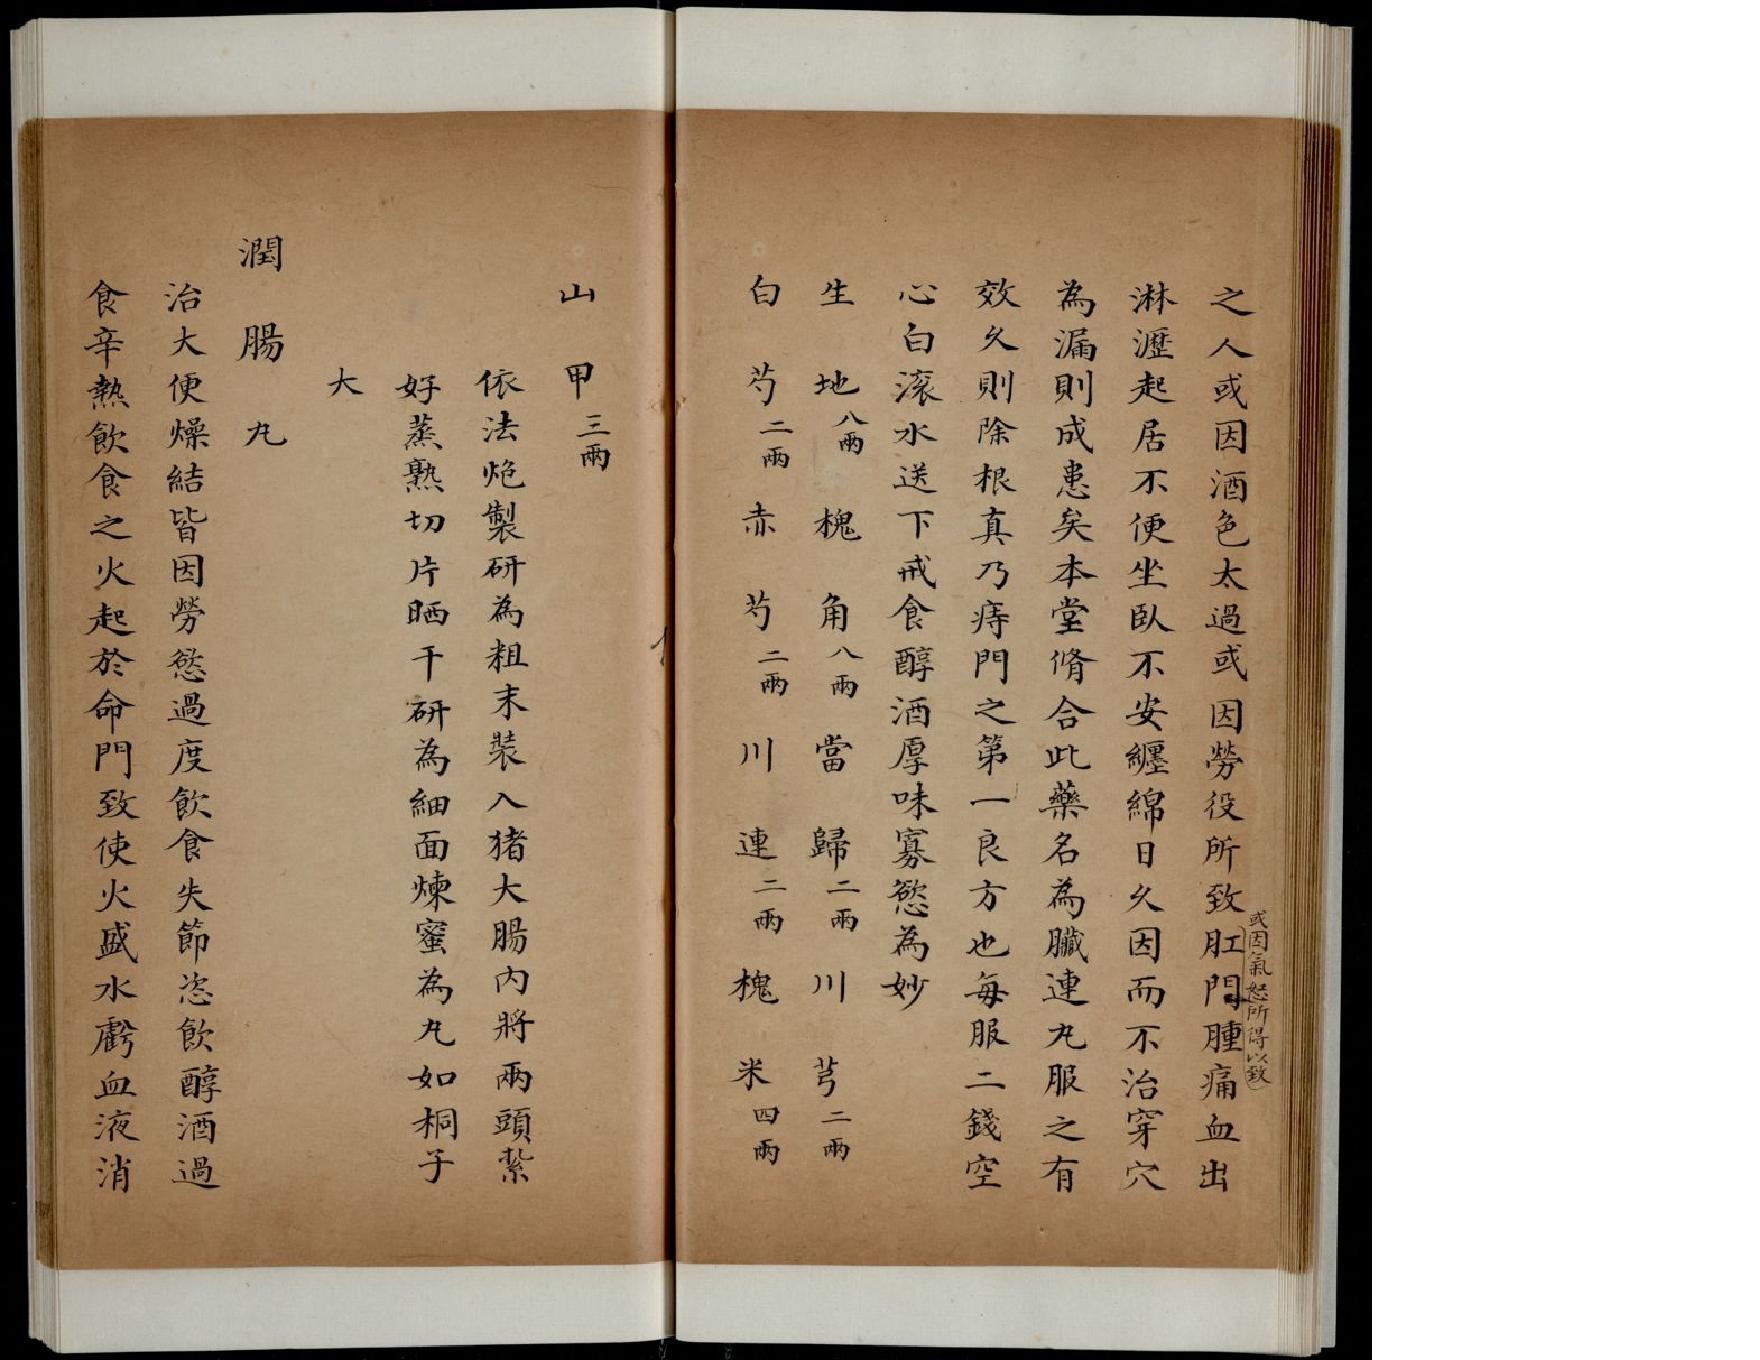 之人或因酒色太過或因勞役所致肛門腫痛血出
或因氣怒所得以致
淋瀝起居不便坐臥不安纏綿日久因而不治穿穴
為漏則成患矣本堂脩合此藥名為臟連丸服之有
效久則除根真乃痔門之第一良方也每服二錢空
心白滚水送下戒食醇酒厚味寡慾為妙
生地八兩 槐角八兩 當歸二兩 川芎二兩
白芍二兩 赤芍二兩 川連二兩 槐米四兩
山甲三兩
依法炮製研為粗末裝入猪大腸內將兩頭紮
好蒸熟切片晒干研為細面煉蜜為丸如桐子
大
潤腸丸
治大便燥結皆因勞慾過度飲食失節恣飲醇酒過
食辛熱飲食之火起於命門致使火盛水虧血液消